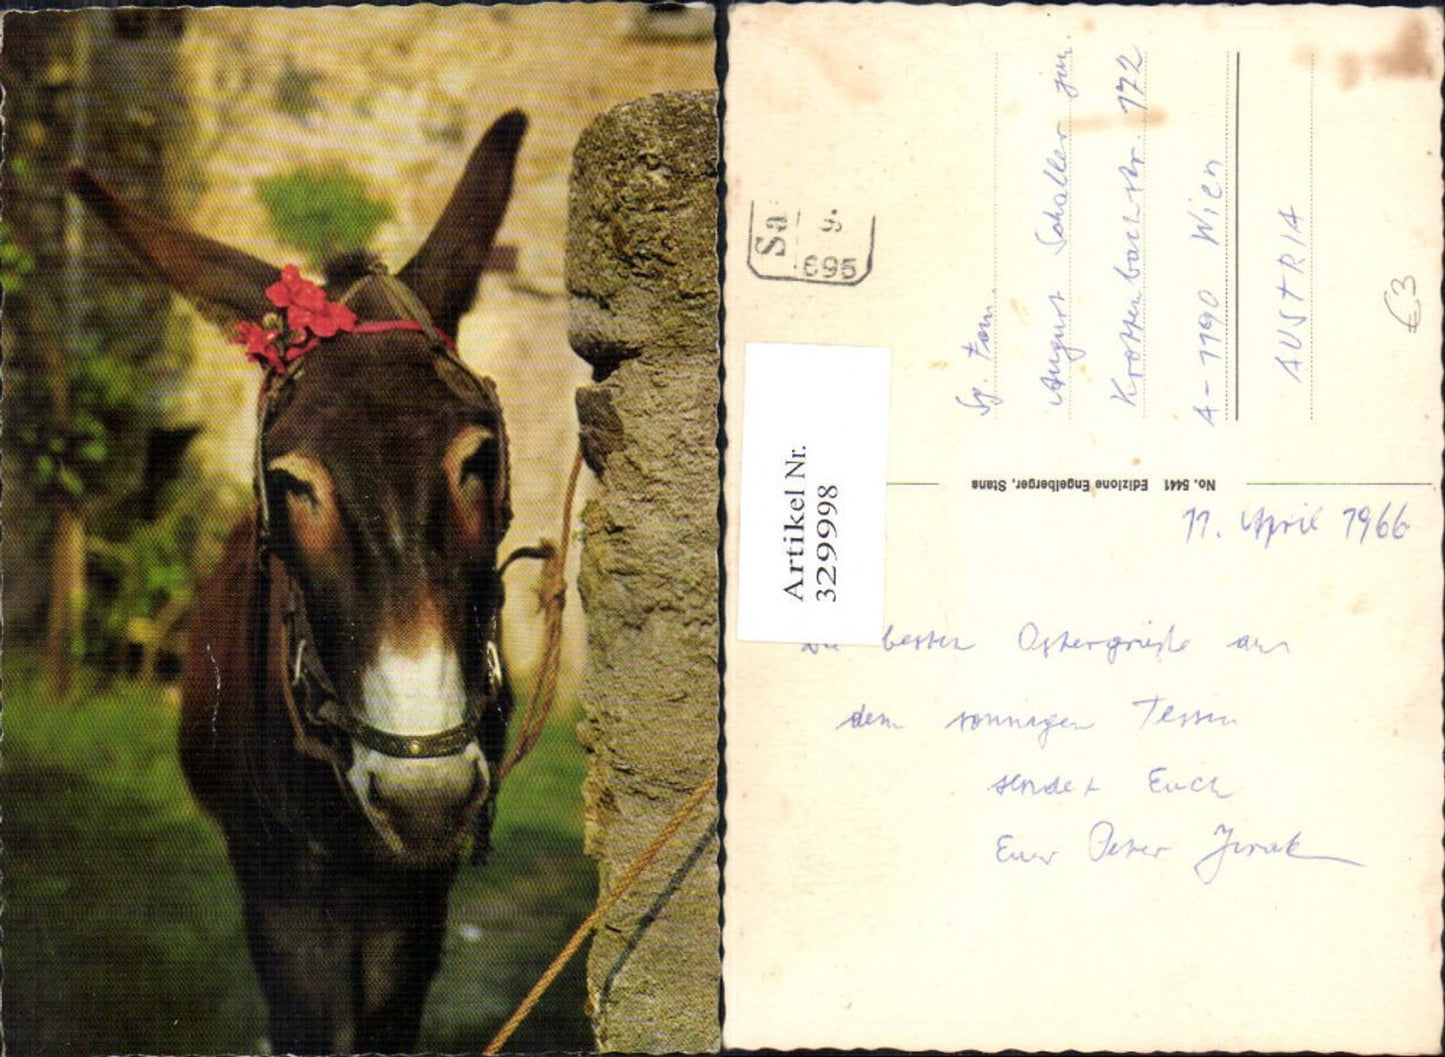 Sa 9
695
Sg. Fam.
August Schaller jun.
Krottenbachstr. 172
A-1190 Wien
AUSTRIA
€3
No. 5441 Edizione Engelberger, Stans
Artikel Nr.
329998
11. April 1966
Die besten Ostergrüße aus
dem sonnigen Tessin
sendet Euch
Euer Peter